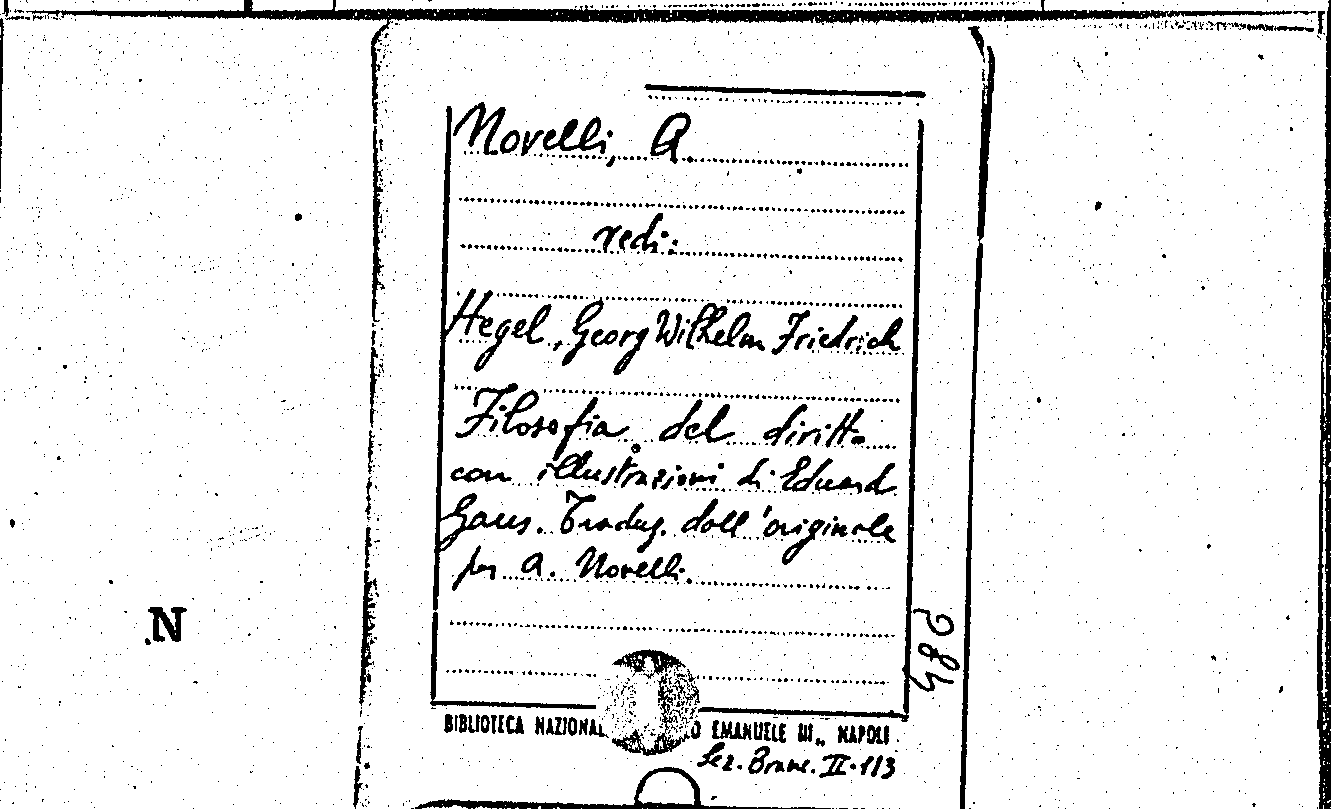 Novelli, A.
vedi:
Hegel, Georg Wilhelm Friedrich
Filosofia del diritto
con illustrazioni di Eduard
Gans. Traduz. dall'originale
per A. Novelli.
N
BIBLIOTECA NAZIONAL O EMANUELE III„ NAPOLI
Sez. Branc. II-113